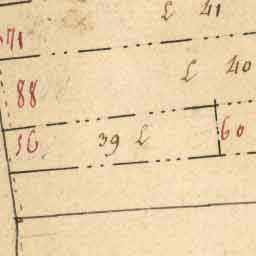 L 41
71
L 40
88
56 39 L 60